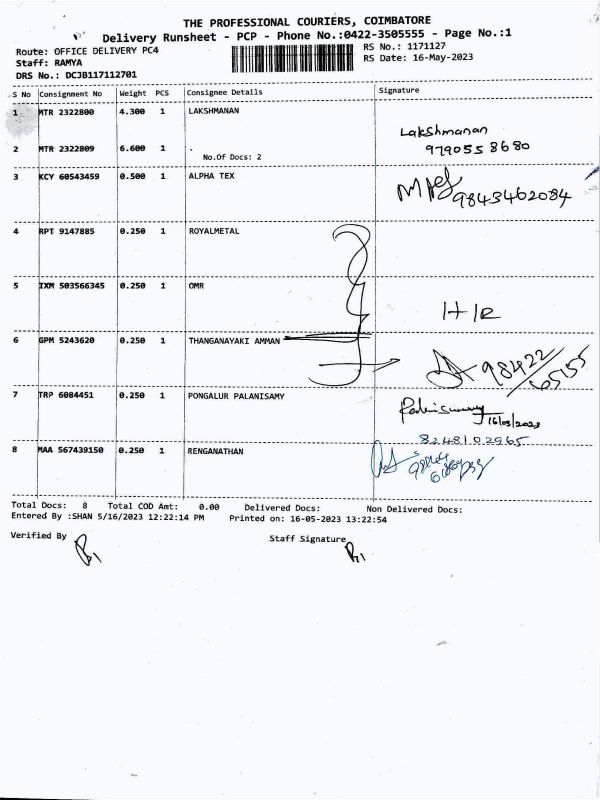 THE PROFESSIONAL COURIERS, COIMBATORE
Delivery Runsheet - PCP - Phone No.:0422-3505555 - Page No.:1
Route: OFFICE DELIVERY PC4
RS No.: 1171127
Staff: RAMYA
RS Date: 16-May-2023
DRS No.: DCJB117112701
S No Consignment No Weight PCS Consignee Details Signature
1 MTR 2322800 4.300 1 LAKSHMANAN
Lakshmanan
9790558680
2 MTR 2322809 6.600 1 .
No.Of Docs: 2
3 KCY 60543459 0.500 1 ALPHA TEX
9843462084
4 RPT 9147885 0.250 1 ROYALMETAL
5 IXM 503566345 0.250 1 OMR
H/R
6 GPM 5243620 0.250 1 THANGANAYAKI AMMAN
98422
65155
7 TRP 6084451 0.250 1 PONGALUR PALANISAMY
16/05/2023
8248102965
8 MAA 567439150 0.250 1 RENGANATHAN
Total Docs: 8 Total COD Amt: 0.00 Delivered Docs: Non Delivered Docs:
Entered By :SHAN 5/16/2023 12:22:14 PM Printed on: 16-05-2023 13:22:54
Verified By
Staff Signature